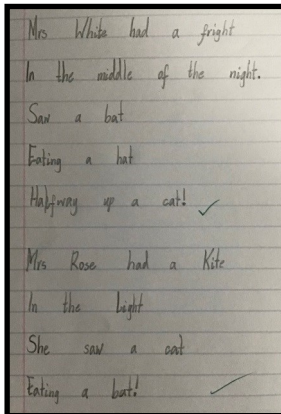 Mrs White had a fright
In the middle of the night.
Saw a bat
Eating a hat
Halfway up a cat!
Mrs Rose had a Kite
In the Light
She saw a cat
Eating a bat!